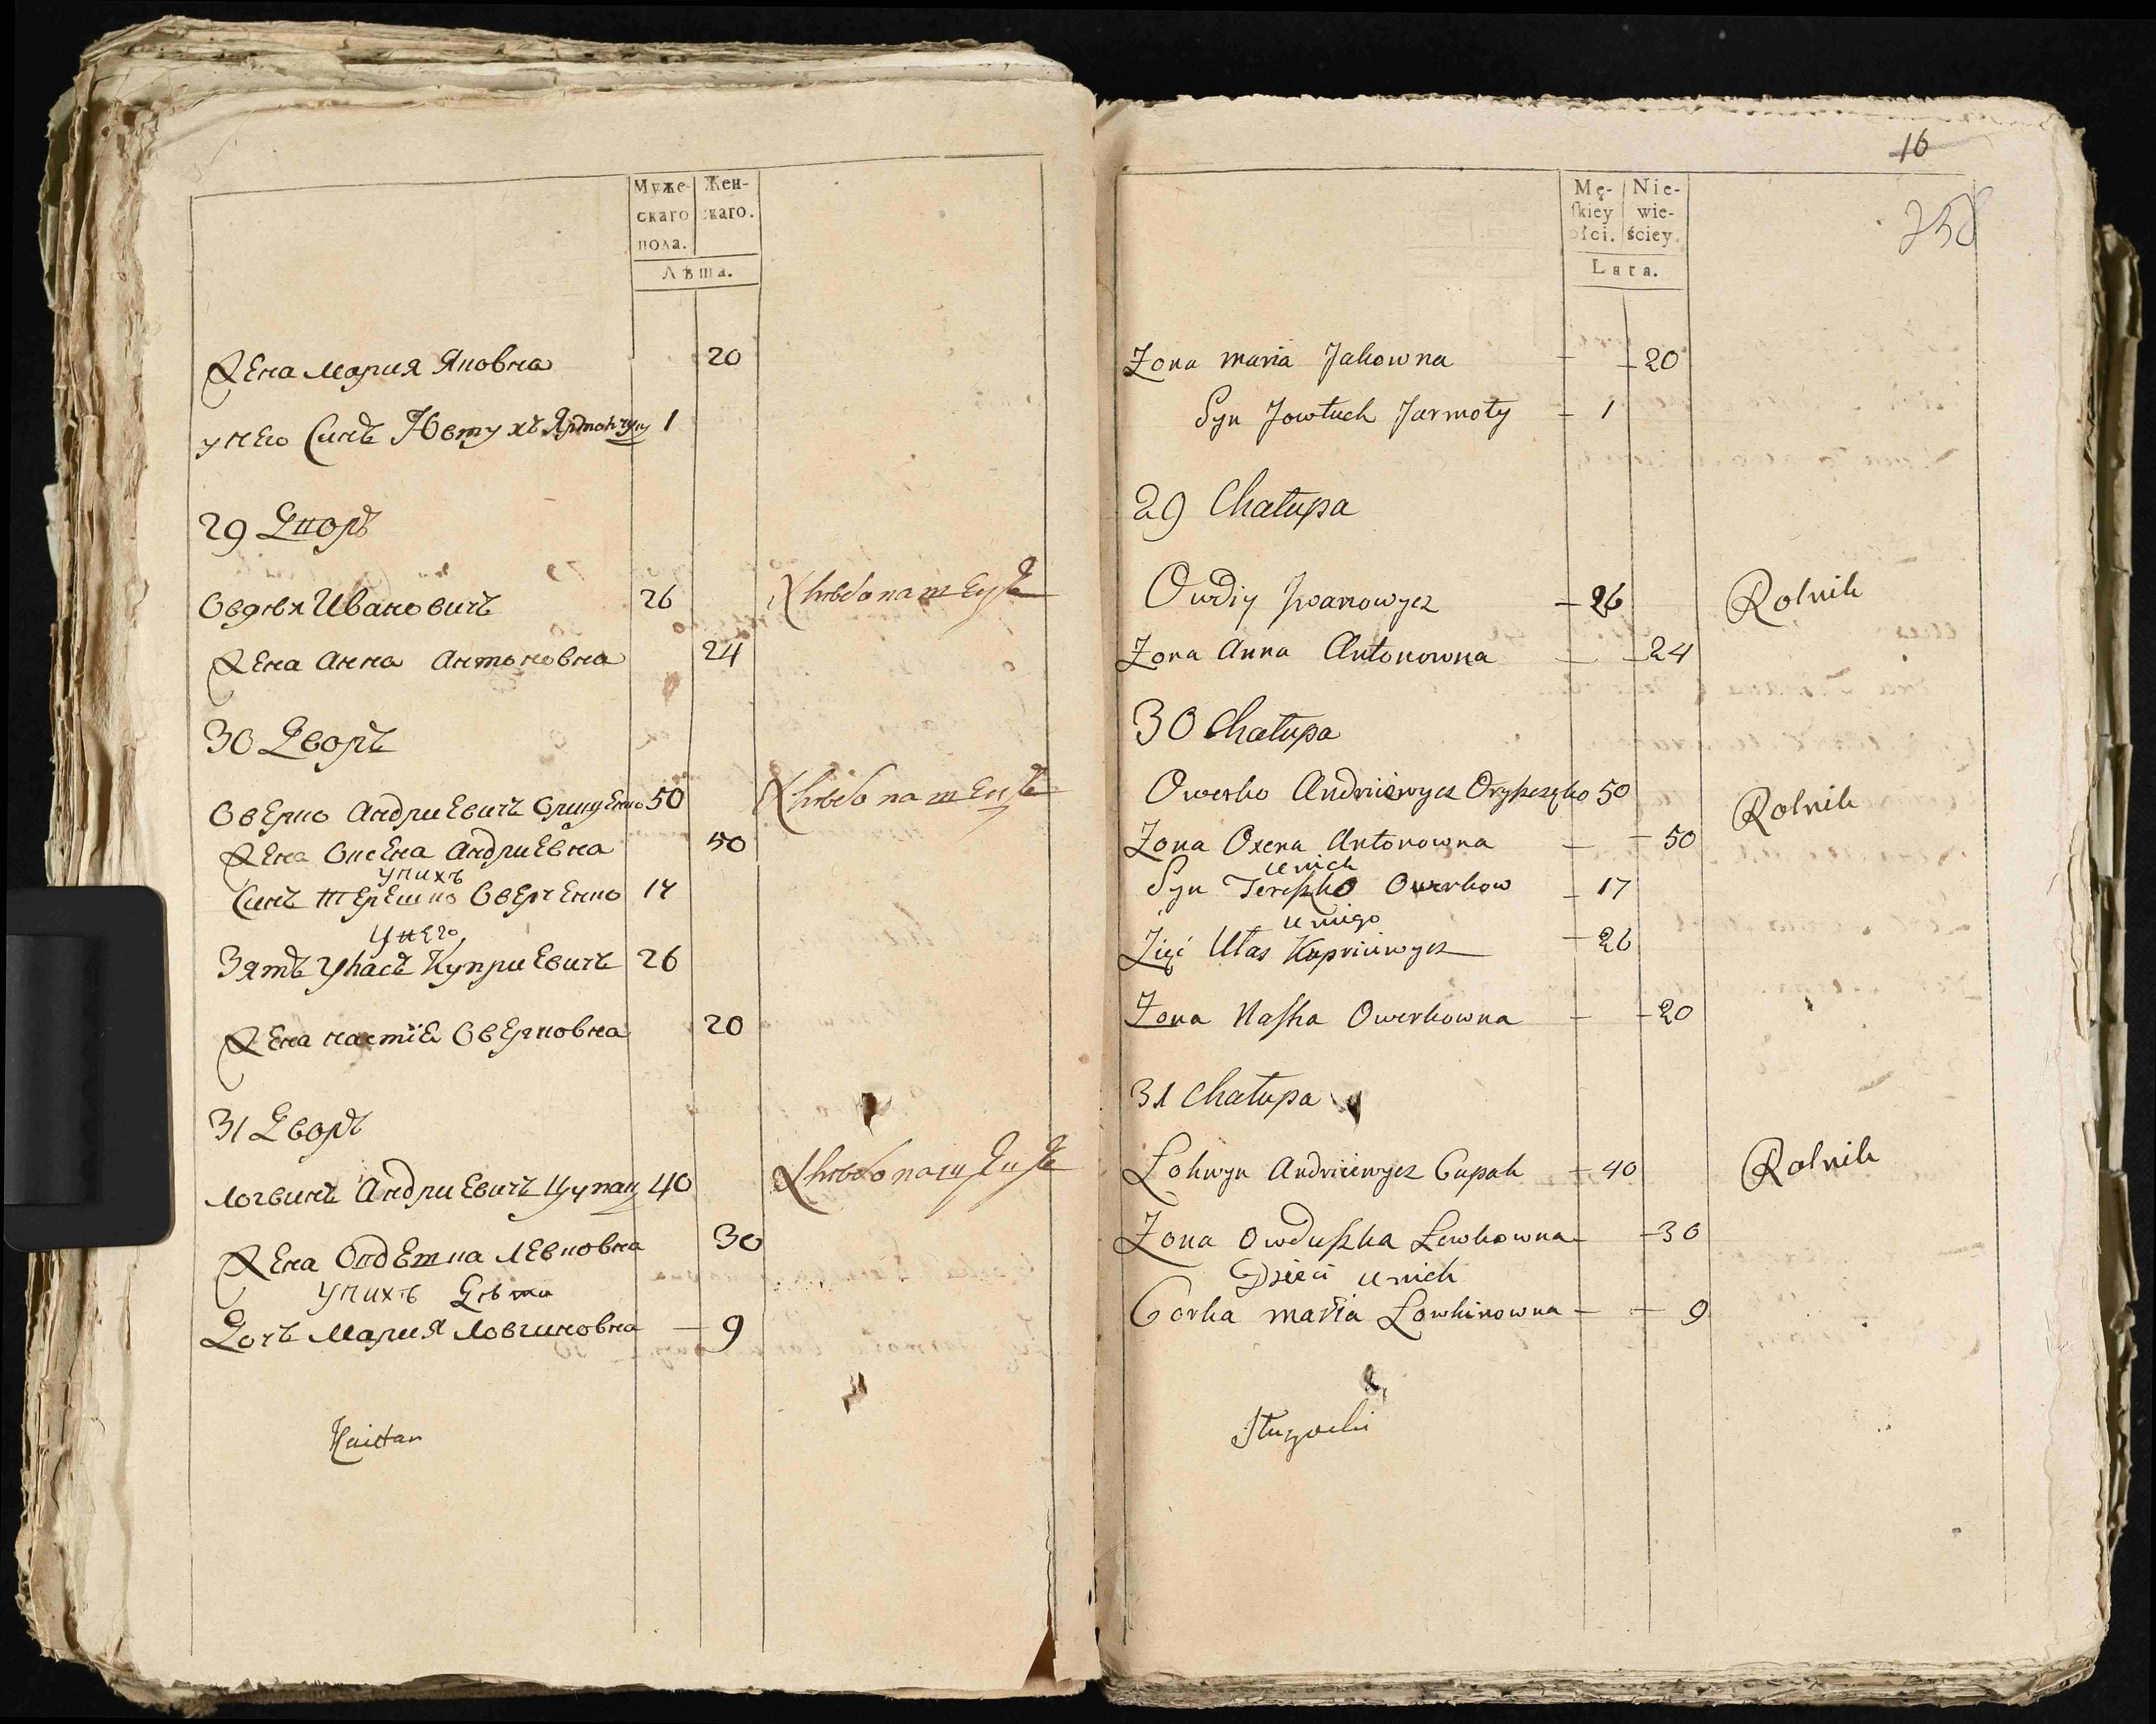 Муже- Жен-
скаго скаго.
пола.
Лѣта.
Жена Мария Яковна 20
у него Синъ Ювтухъ 1
29 Дворъ
Овдѣй Ивановичъ 26 Хлѣбопашецъ
Жена Анна Антоновна 24
30 Дворъ
Оверко Андриевичъ 50 Хлѣбопашецъ
Жена Оксена Андриевна 50
у нихъ
Синъ Терешко Оверченко 17
у него
Зять Уласъ Куприевичъ 26
Жена Настіе Оверковна 20
31 Дворъ
Логвинъ Андриевичъ Цупак 40 Хлѣбопашецъ
Жена Левковна 30
у нихъ Дѣти
Дочъ Мария Ловгиновна — 9
16
258
Mę- Nie-
skiey wie-
płci. ściey.
Lata.
Zona maria Jakowna — — 20
Syn Jowtuch Jarmoty — 1
29 Chałupa
Owdiy Iwanowycz — 26 Rolnik
Zona Anna Antonowna — — 24
30 Chałupa
Owerko Andriiewycz 50 Rolnik
Zona Oxena Antonowna — — 50
u nich
Syn Tereszko Owerkow — 17
u niego
Zięć Ułas Kupriiewycz — 26
Zona Nastia Owerkowna — — 20
31 Chałupa
Łohwyn Andriiewycz Cupak — 40 Rolnik
Zona Owduszka Lewkowna — — 30
Dzieci u nich
Corka maria Łowhinowna — — 9